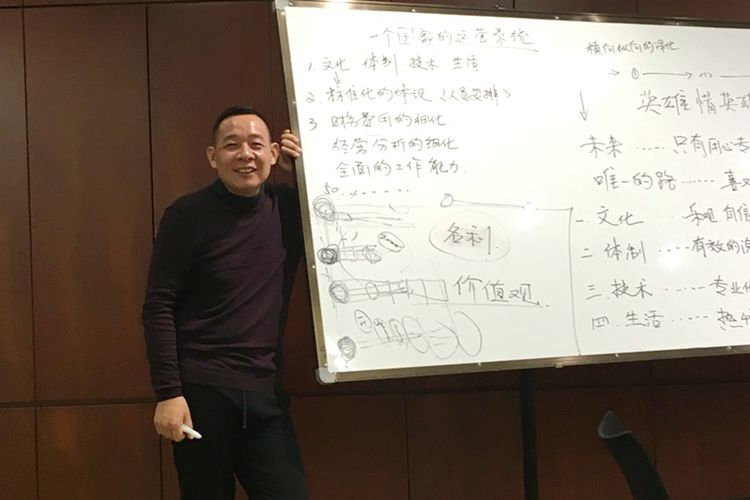 一个国家的运营系统
1. 文化 体制 技术 生活
2. 标准化的体现 (人员安排)
3 财务费用的细化
经营分析的细化
全面的工作能力.
50
名利.
价值观.
的深化
①
英雄惜英雄
未来 ..... 只有用心
唯一的路 ......
一. 文化 .... 乐观 自信
二. 体制 .... 有效的
三. 技术 ...... 专业
四. 生活 ......